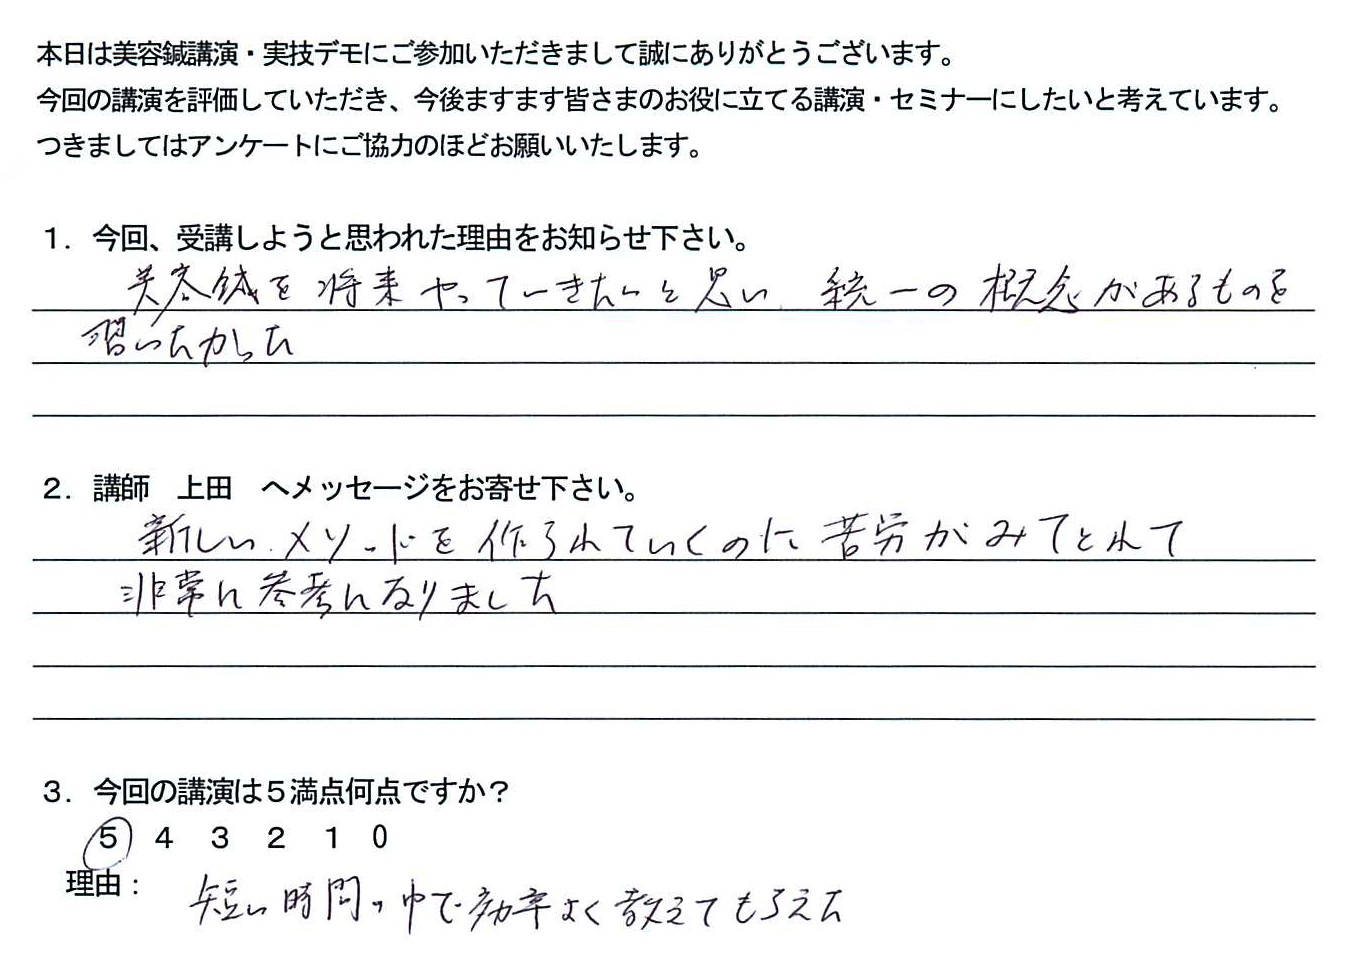 本日は美容鍼講演・実技デモにご参加いただきまして誠にありがとうございます。
今回の講演を評価していただき、今後ますます皆さまのお役に立てる講演・セミナーにしたいと考えています。
つきましてはアンケートにご協力のほどお願いいたします。
1．今回、受講しようと思われた理由をお知らせ下さい。
美容鍼を将来やっていきたいと思い、統一の概念があるものを
習いたかった
2．講師　上田　へメッセージをお寄せ下さい。
新しいメソッドを作られていくのに苦労がみてとれて
非常に参考になりました
3．今回の講演は５満点何点ですか？
5 4 3 2 1 0
理由： 短い時間の中で効率よく教えてもらえた